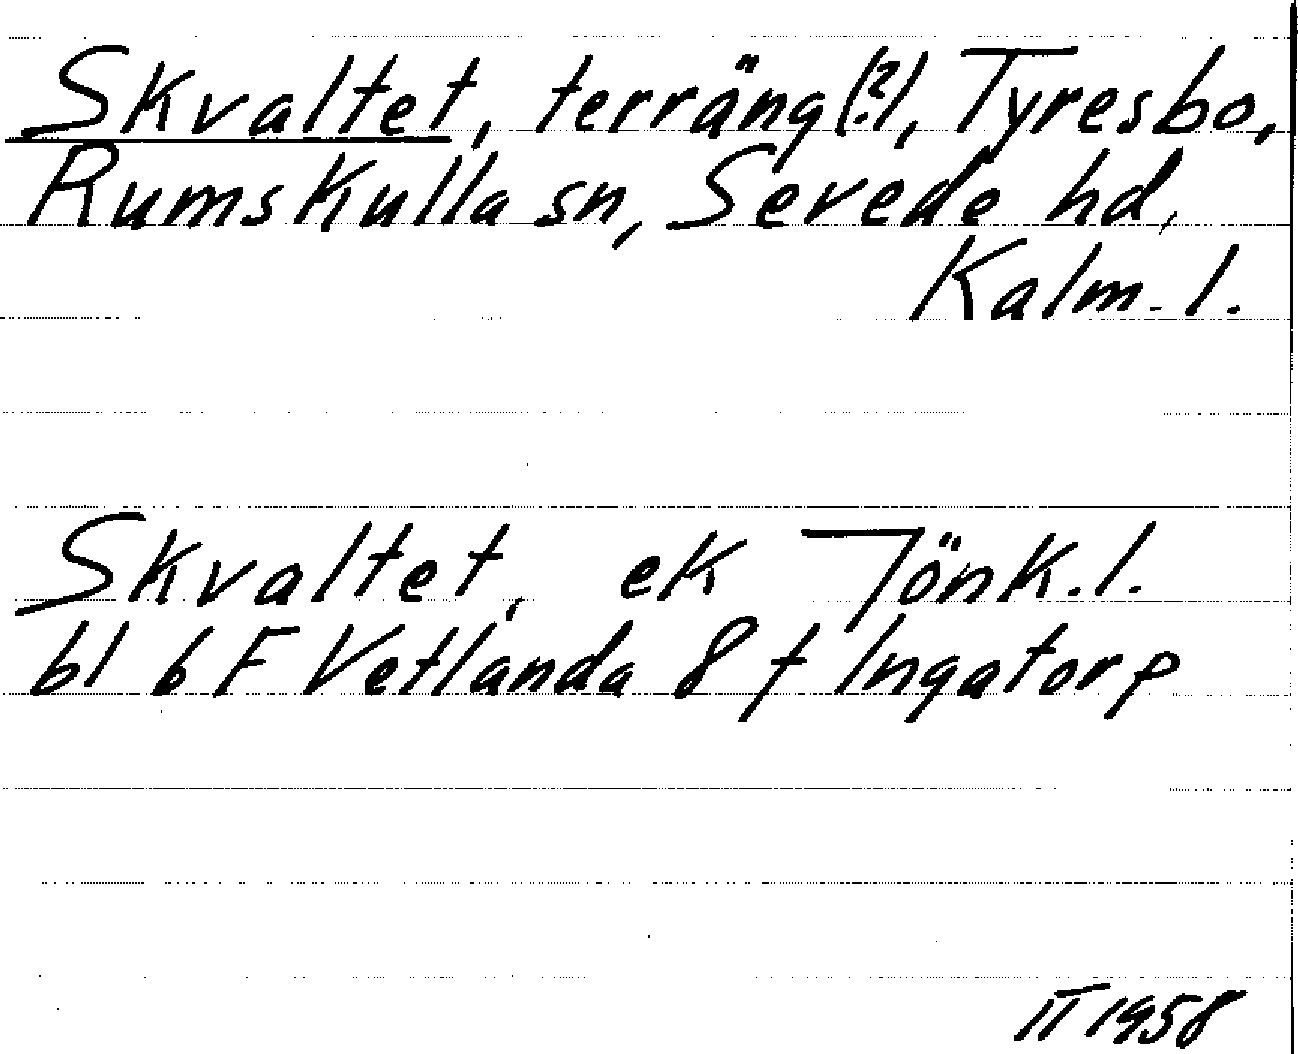 Skvaltet, terräng(?), Tyresbo,
Rumskulla sn, Sevede hd,
Kalm. l.
Skvaltet, ek Jönk. l.
bl 6 F Vetlanda 8 f Ingatorp
IT 1958